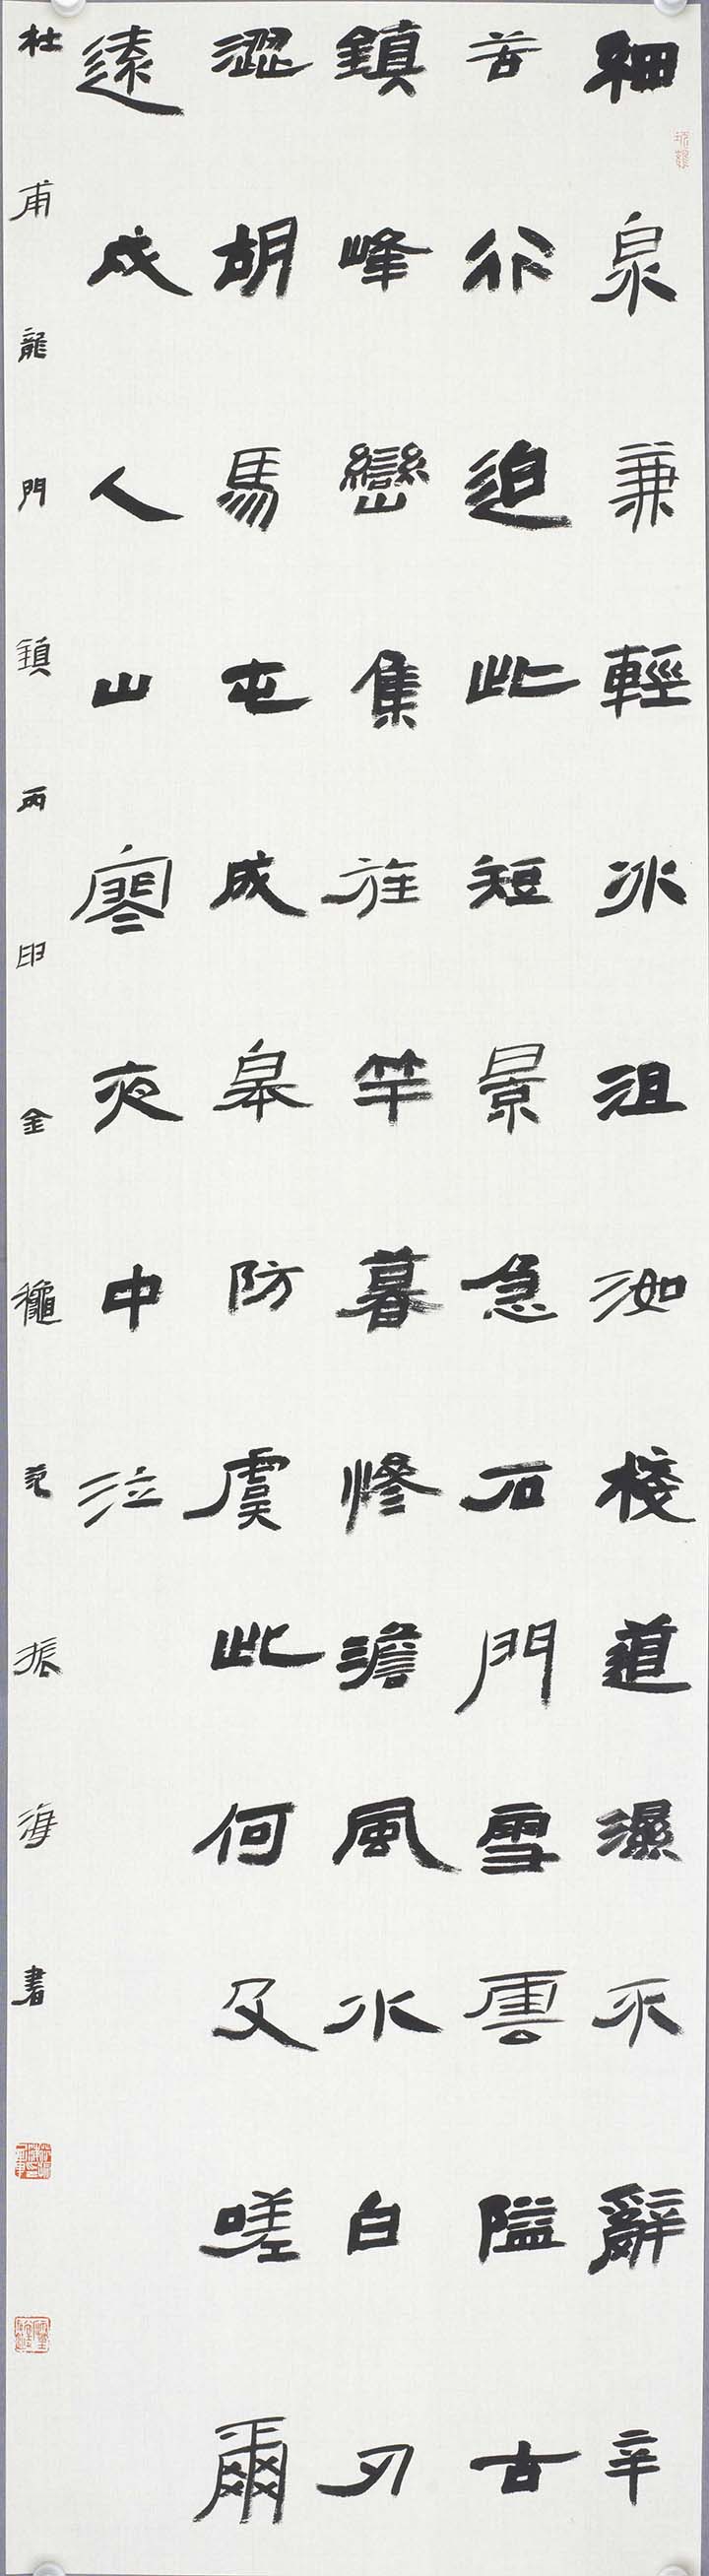 細泉兼輕冰沮洳棧道濕不辭辛
苦行迫此短景急石門雪雲隘古
鎮峰巒集旌竿暮慘澹風水白刃
澀胡馬屯成皋防虞此何及嗟爾
遠戍人山寒夜中泣
杜甫龍門鎮丙申金龝范振海書